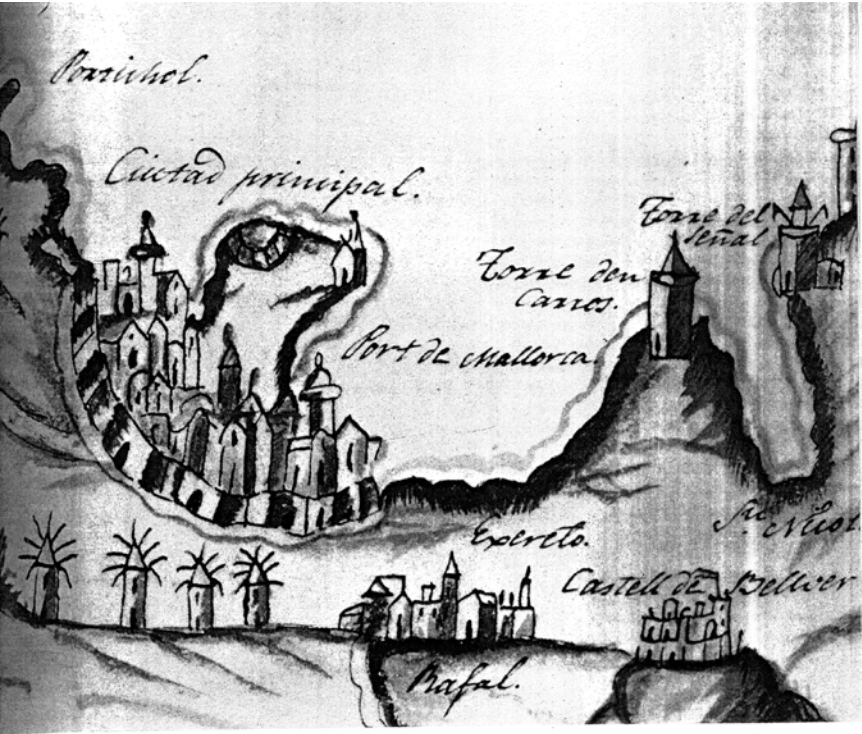 Portichol.
Ciutad principal.
Torre del
señal
Torre den
Carros.
Port de Mallorca
Exereto.
Castell de Bellver
Rafal.